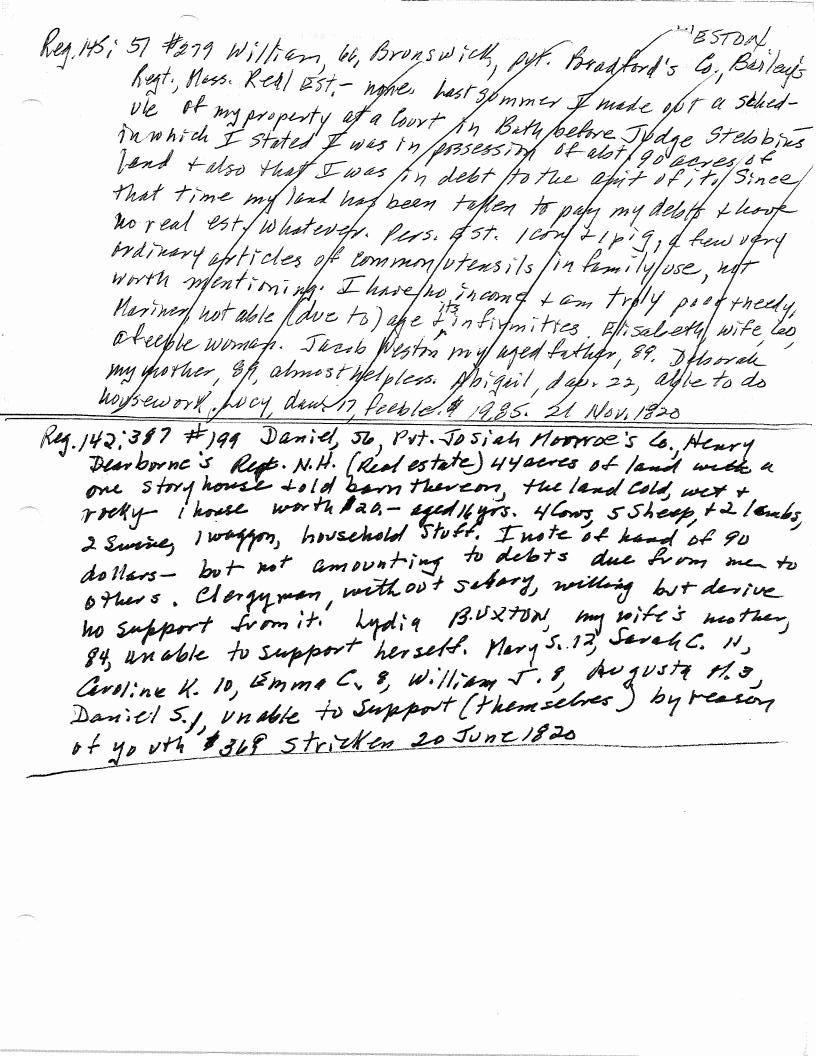 WESTON
Reg. 145; 51 #279 William, 66, Bronswick, pvt. Bradford's Co., Bailey's
Regt., Mass. Real Est.- none. Last summer I made out a sched-
ule of my property at a Court in Bath before Judge Stebbins
in which I stated I was in possession of abt. 90 acres of
land & also that I was in debt to the amt of it. Since
that time my land has been taken to pay my debts & have
no real est. whatever. Pers. Est. 1 cow & 1 pig, a few very
ordinary articles of common utensils in family use, not
worth mentioning. I have no income & am truly poor & needy,
Mariner, not able (due to) age & its infirmities. Elisabeth, wife, 60,
a feeble woman. Jacob Weston my aged father, 89. Deborah
my mother, 89, almost helpless. Abigail, dau. 22, able to do
housework. Lucy, dau. 17, feeble. $19.85. 21 Nov. 1820
Reg. 142; 387 #199 Daniel, 56, Pvt. Josiah Monroe's Co., Henry
Dearborne's Regt. N.H. (Real estate) 44 acres of land with a
one story house & old barn thereon, the land cold, wet &
rocky 1 house worth $20.- aged 16 yrs. 4 Cows, 5 Sheep, & 2 lambs,
2 Swine, 1 waggon, household stuff. I note of hand of 90
dollars- but not amounting to debts due from me to
others. Clergyman, without salary, willing but derive
no support from it. Lydia BUXTON, my wife's mother,
84, unable to support herself. Mary S. 12, Sarah C. 11,
Caroline K. 10, Emma C. 8, William J. 8, Augusta M. 3,
Daniel S. 1, unable to support (themselves) by reason
of youth $369 stricken 20 June 1820